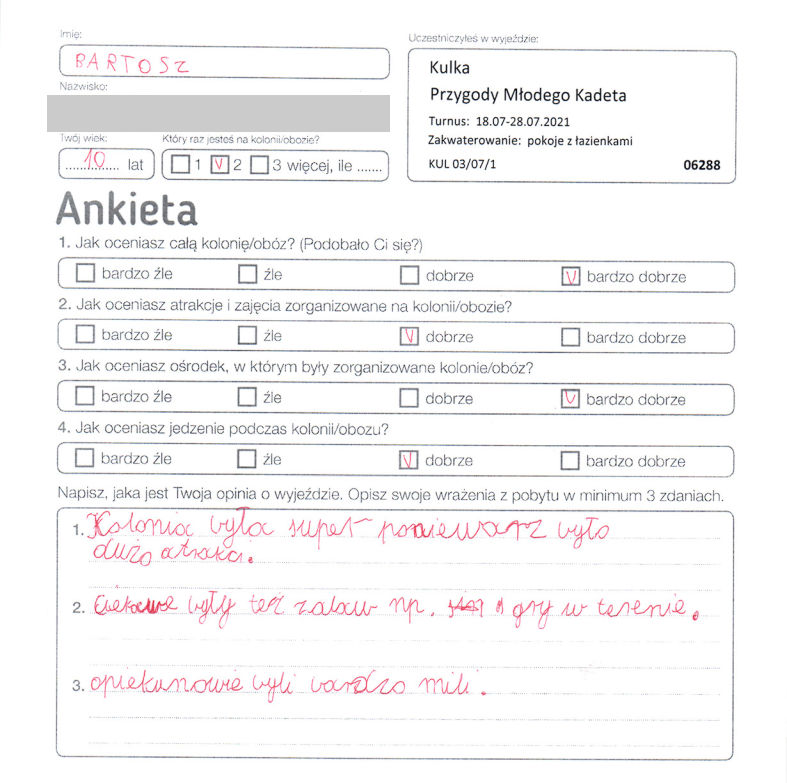 Imię:
BARTOSZ
Nazwisko:
Twój wiek:
10 lat
Który raz jesteś na kolonii/obozie?
1 V 2 3 więcej, ile .......
Uczestniczyłeś w wyjeździe:
Kulka
Przygody Młodego Kadeta
Turnus: 18.07-28.07.2021
Zakwaterowanie: pokoje z łazienkami
KUL 03/07/1 06288
Ankieta
1. Jak oceniasz całą kolonię/obóz? (Podobało Ci się?)
bardzo źle źle dobrze V bardzo dobrze
2. Jak oceniasz atrakcje i zajęcia zorganizowane na kolonii/obozie?
bardzo źle źle V dobrze bardzo dobrze
3. Jak oceniasz ośrodek, w którym były zorganizowane kolonie/obóz?
bardzo źle źle dobrze V bardzo dobrze
4. Jak oceniasz jedzenie podczas kolonii/obozu?
bardzo źle źle V dobrze bardzo dobrze
Napisz, jaka jest Twoja opinia o wyjeździe. Opisz swoje wrażenia z pobytu w minimum 3 zdaniach.
1. Kolonia była super poniewarz było
dużo atrakci.
2. Ciekawe były też zabaw np. gry w terenie.
3. opiekunowie byli bardzo mili.